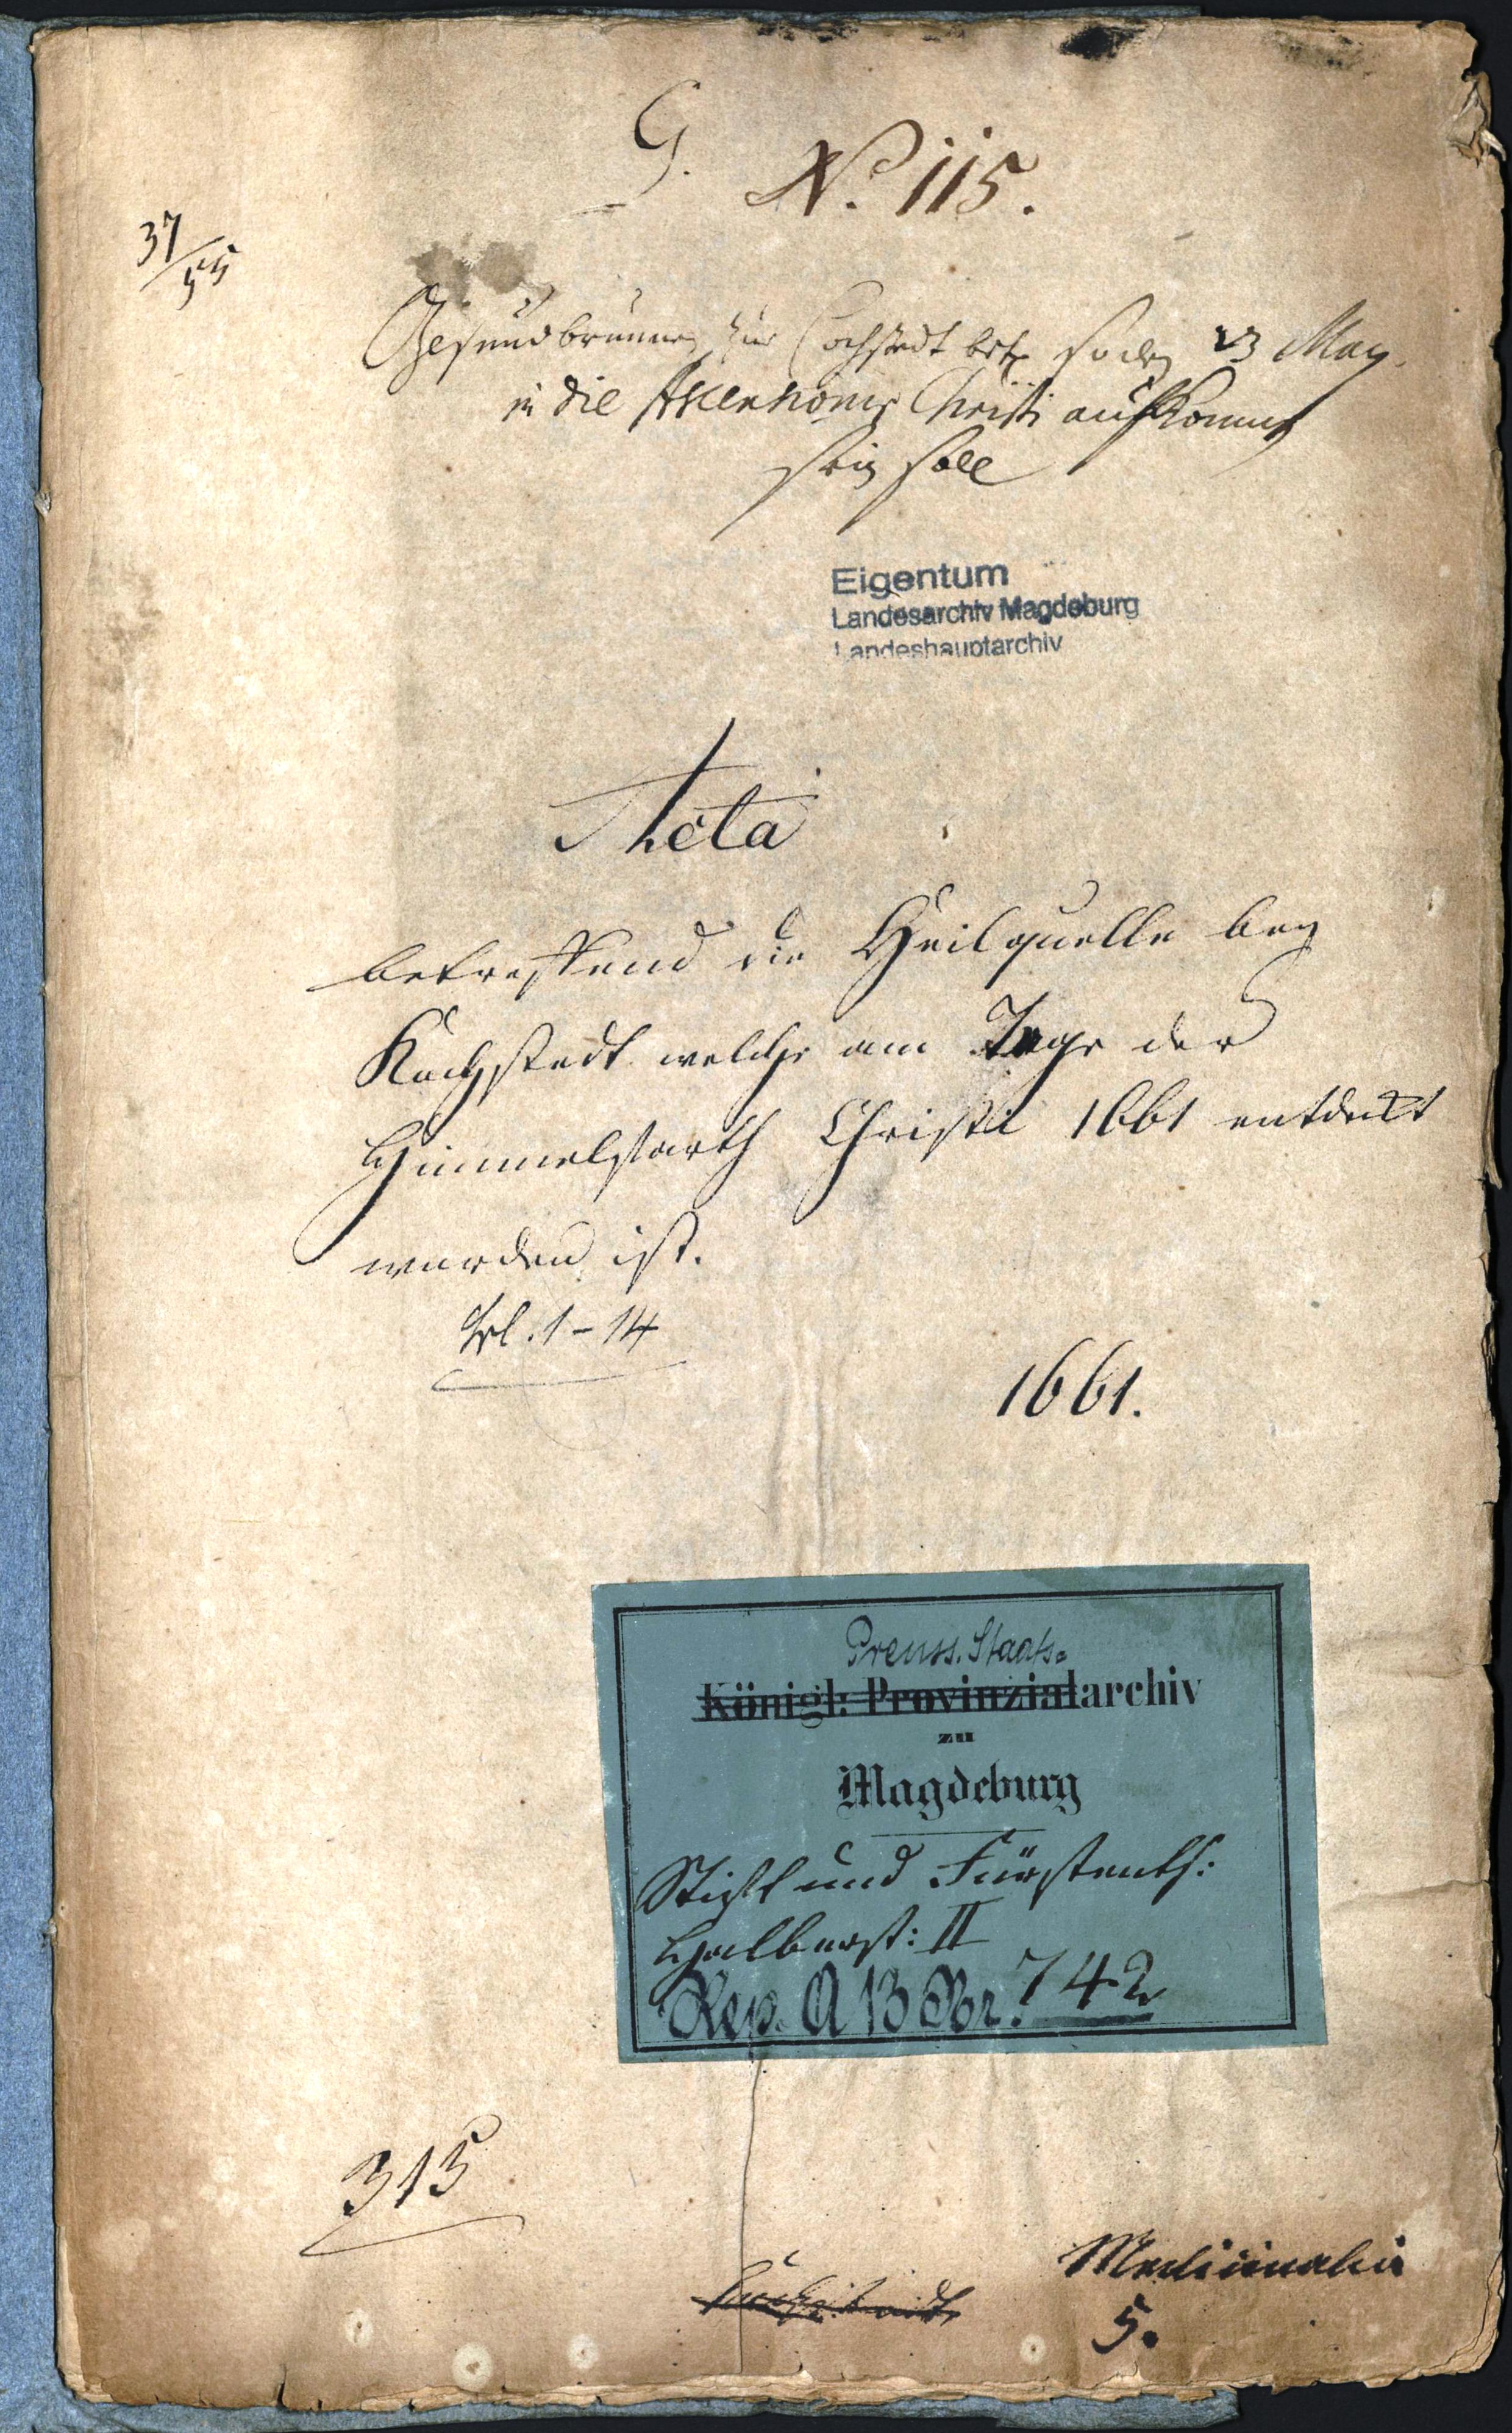 G. No. 115.
37/55
Gesundbrunnen zu Cochstedt betr. so den 23 May.
in die Ascensionis Christi aufkommen
sein soll
Eigentum
Landesarchiv Magdeburg
Landeshauptarchiv
Acta
betreffend die Heilquelle bey
Kochstedt welche am Tage der
Himmelfarth Christi 1661 entdekt
worden ist.
Fol. 1-14
1661.
Preuss. Staats-
Königl: Provinzialarchiv
zu
Magdeburg
Stift und Fürstenth:
Halberst: II
Rep. A 13 Nr. 742
315
Medicinalia
5.